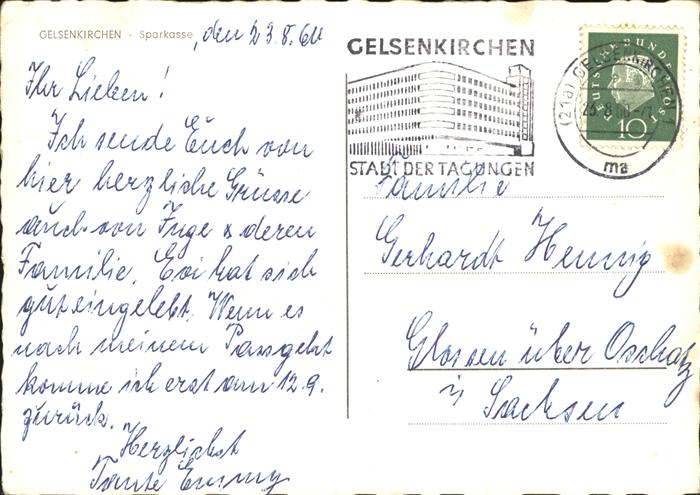 GELSENKIRCHEN - Sparkasse, den 23.8.60
Ihr Lieben!
Ich sende Euch von
hier herzliche Grüsse
auch von Inge & deren
Familie. Evi hat sich
gut eingelebt. Wenn es
nach meinem Pass geht
komme ich erst am 12.9.
zurück.
Herzlichst
Tante Emmy
GELSENKIRCHEN
STADT DER TAGUNGEN
DEUTSCHE BUNDESPOST
10
(21a) GELSENKIRCHEN
23.-8.60
ma
Familie
Gerhardt Hennig
Glossen über Oschatz
in Sachsen